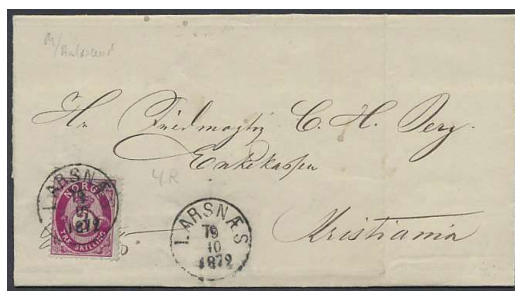 Hr Fuldmægtig C. H. Berg.
Enkekassen
4R
Kristiania
LARSNÆS
NORGE
3
TRE SKILLING
LARSNÆS
19
10
1872